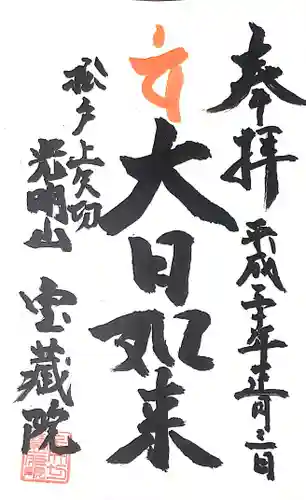 奉拝
平成二十年正月三日
大日如来
松戸上矢切
光明山
宝蔵院